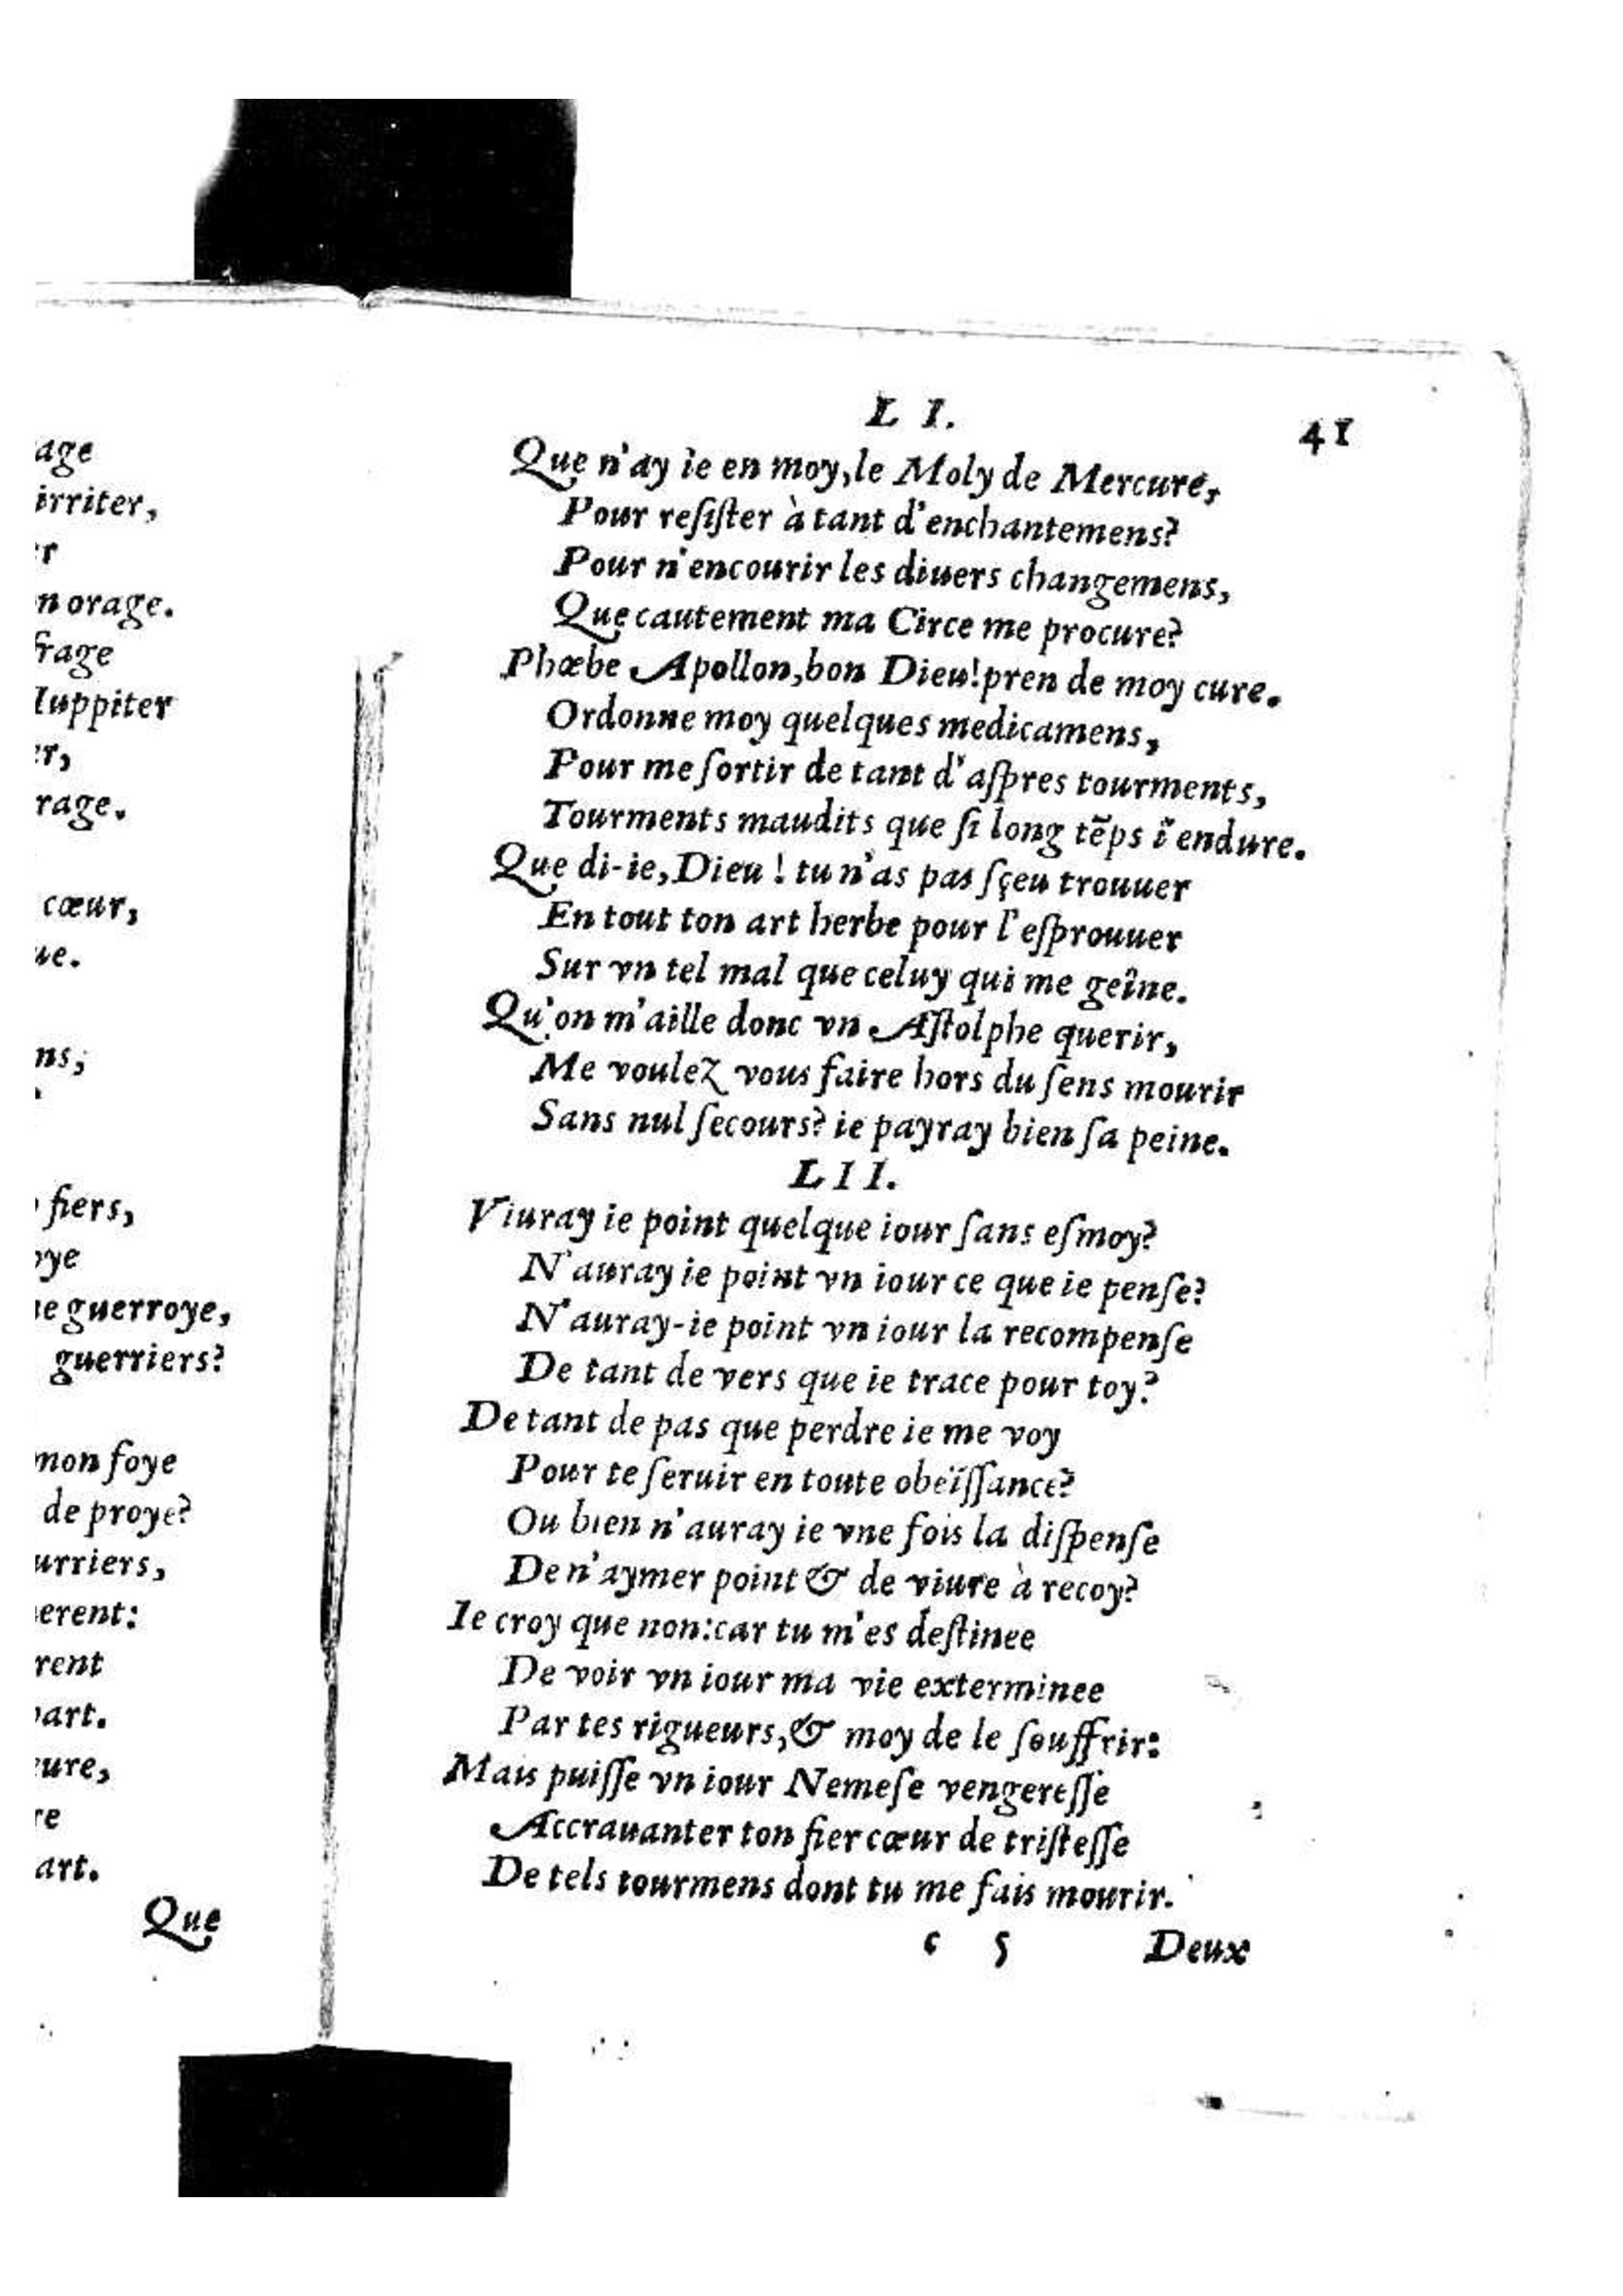 age
irriter,
r
n orage.
frage
Iuppiter
er,
rage.
cœur,
ue.
ns,
fiers,
oye
ue guerroye,
guerriers?
mon foye
de proye?
urriers,
erent:
rent
part.
eure,
re
art.
Que
L I.
41
Que n'ay ie en moy, le Moly de Mercure,
Pour reſiſter à tant d'enchantemens?
Pour n'encourir les diuers changemens,
Que cautement ma Circe me procure?
Phœbe Apollon, bon Dieu! pren de moy cure.
Ordonne moy quelques medicamens,
Pour me ſortir de tant d'aſpres tourments,
Tourments maudits que ſi long tẽps i'endure.
Que di-ie, Dieu! tu n'as pas ſçeu trouuer
En tout ton art herbe pour l'eſprouuer
Sur vn tel mal que celuy qui me geîne.
Qu'on m'aille donc vn Aſtolphe querir,
Me voulez vous faire hors du ſens mourir
Sans nul ſecours? ie payray bien ſa peine.
L I I.
Viuray ie point quelque iour ſans eſmoy?
N'auray ie point vn iour ce que ie penſe?
N'auray-ie point vn iour la recompenſe
De tant de vers que ie trace pour toy?
De tant de pas que perdre ie me voy
Pour te ſeruir en toute obeïſſance?
Ou bien n'auray ie vne fois la diſpenſe
De n'aymer point & de viure à recoy?
Ie croy que non: car tu m'es deſtinee
De voir vn iour ma vie exterminee
Par tes rigueurs, & moy de le ſouffrir:
Mais puiſſe vn iour Nemeſe vengereſſe
Accrauanter ton fier cœur de triſteſſe
De tels tourmens dont tu me fais mourir.
c 5
Deux